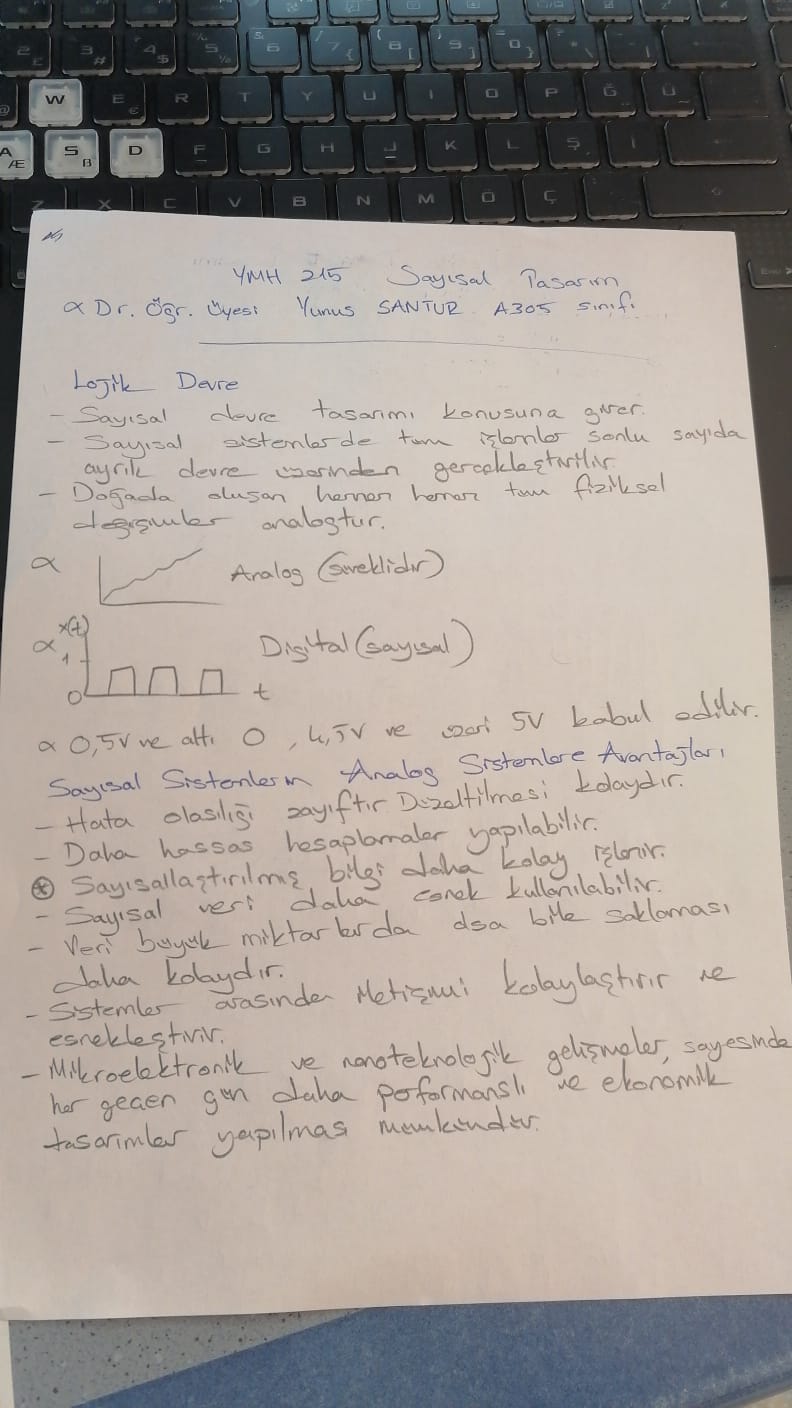 YMH 215 Sayısal Tasarım
∝ Dr. Öğr. Üyesi Yunus SANTUR A305 sınıfı
Lojik Devre
- Sayısal devre tasarımı konusuna girer.
- Sayısal sistemlerde tüm işlemler sonlu sayıda
ayrık devre üzerinden gerçekleştirilir.
- Doğada oluşan hemen hemen tüm fiziksel
değişimler analogtur.
∝ Analog (süreklidir)
∝ x(t)
1
Digital (sayısal)
0
t
∝ 0,5V ve altı 0, 4,5V ve üzeri 5V kabul edilir.
Sayısal Sistemlerin Analog Sistemlere Avantajları
- Hata olasılığı zayıftır Düzeltilmesi kolaydır.
- Daha hassas hesaplamalar yapılabilir.
* Sayısallaştırılmış bilgi daha kolay işlenir.
- Sayısal veri daha esnek kullanılabilir.
- Veri büyük miktarlarda olsa bile saklaması
daha kolaydır.
- Sistemler arasında iletişimi kolaylaştırır ve
esnekleştirir.
- Mikroelektronik ve nanoteknolojik gelişmeler, sayesinde
her geçen gün daha performanslı ve ekonomik
tasarımlar yapılması mümkündür.
W E R T Y U I O P Ğ Ü
A S D F G H J K L Ş İ
Z X C V B N M Ö Ç